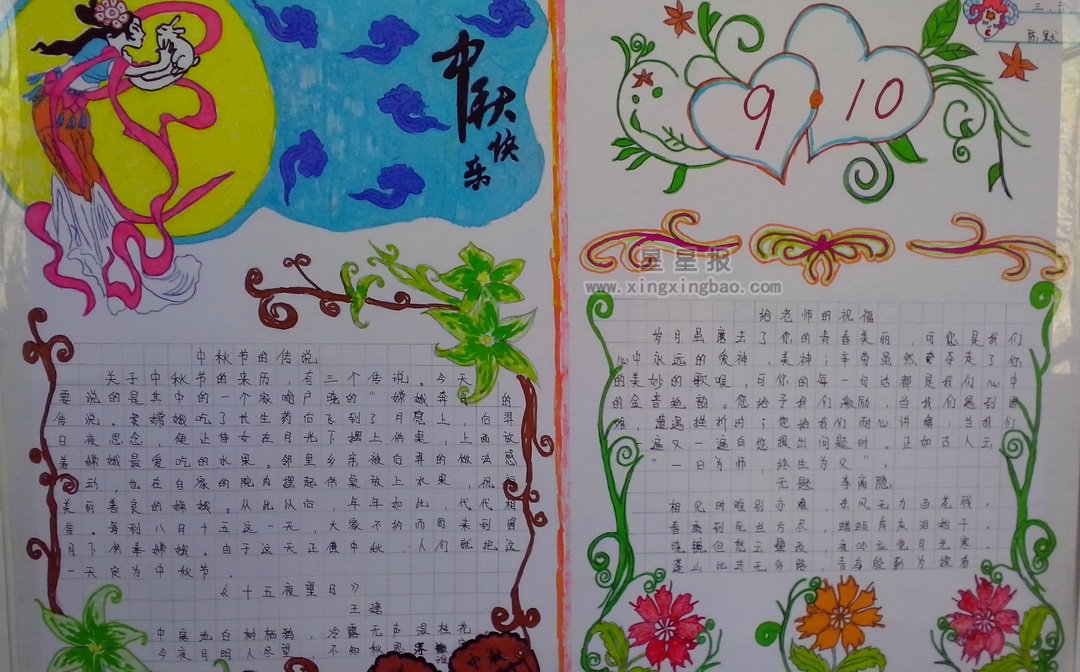 中秋
快乐
中秋节的传说
关于中秋节的来历，有三个传说。今天
要说的是其中的一个家喻户晓的“嫦娥奔月”的
传说。嫦娥吃了长生药后飞到了月亮上，后羿
日夜思念，便让侍女在月光下摆上供桌，上面放
着嫦娥最爱吃的水果。邻里乡亲被后羿的做法感
动，也在自家的院内摆起供桌放上水果，祝福
美丽善良的嫦娥。从此以后，年年如此，代代相
传。每到八月十五这一天，大家不约而同来到圆
月下供奉嫦娥。由于这天正值中秋，人们就把这
一天定为中秋节。
《十五夜望月》
王建
中庭地白树栖鸦，冷露无声湿桂花
今夜月明人尽望，不知秋思落谁
三.
陈默
9.10
星星报
www.xingxingbao.com
给老师的祝福
岁月虽磨去了你的青春美丽，可您是我们
心中永远的爱神，美神；辛劳虽然夺走了你
的美妙的歌喉，可你的每一句话都是我们心中
的金音绝韵。您给予我们激励，当我们遇到困
难，遭遇挫折时；您给我们耐心讲解，当我们
一遍又一遍向您提出问题时。正如古人云
“一日为师，终生为父”。
无题 李商隐
相见时难别亦难，东风无力百花残。
春蚕到死丝方尽，蜡炬成灰泪始干。
晓镜但愁云鬓改，夜吟应觉月光寒。
蓬山此去无多路，青鸟殷勤为探看